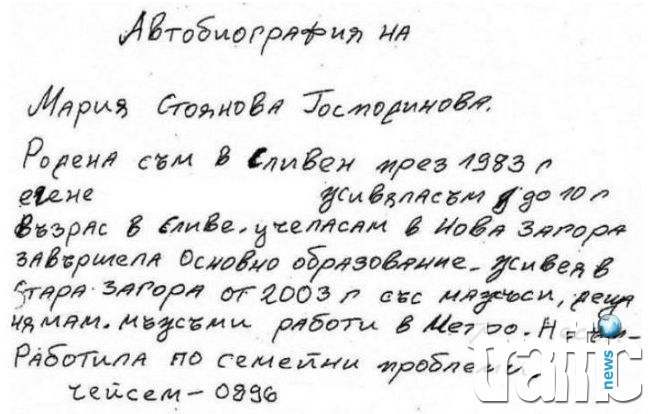 Автобиография на
Мария Стоянова Господинова.
Родена съм в Сливен през 1983 г
егене живяласъм до 10 г
възрас в сливе. учеласам в Нова Загора
завършела Основно образование. живея в
Стара Загора от 2003 г със мажъси, деца
нямам. мъжъми работи в Метро.
Работила по семейни проблеми.
чейсем - 0896
traffic
news